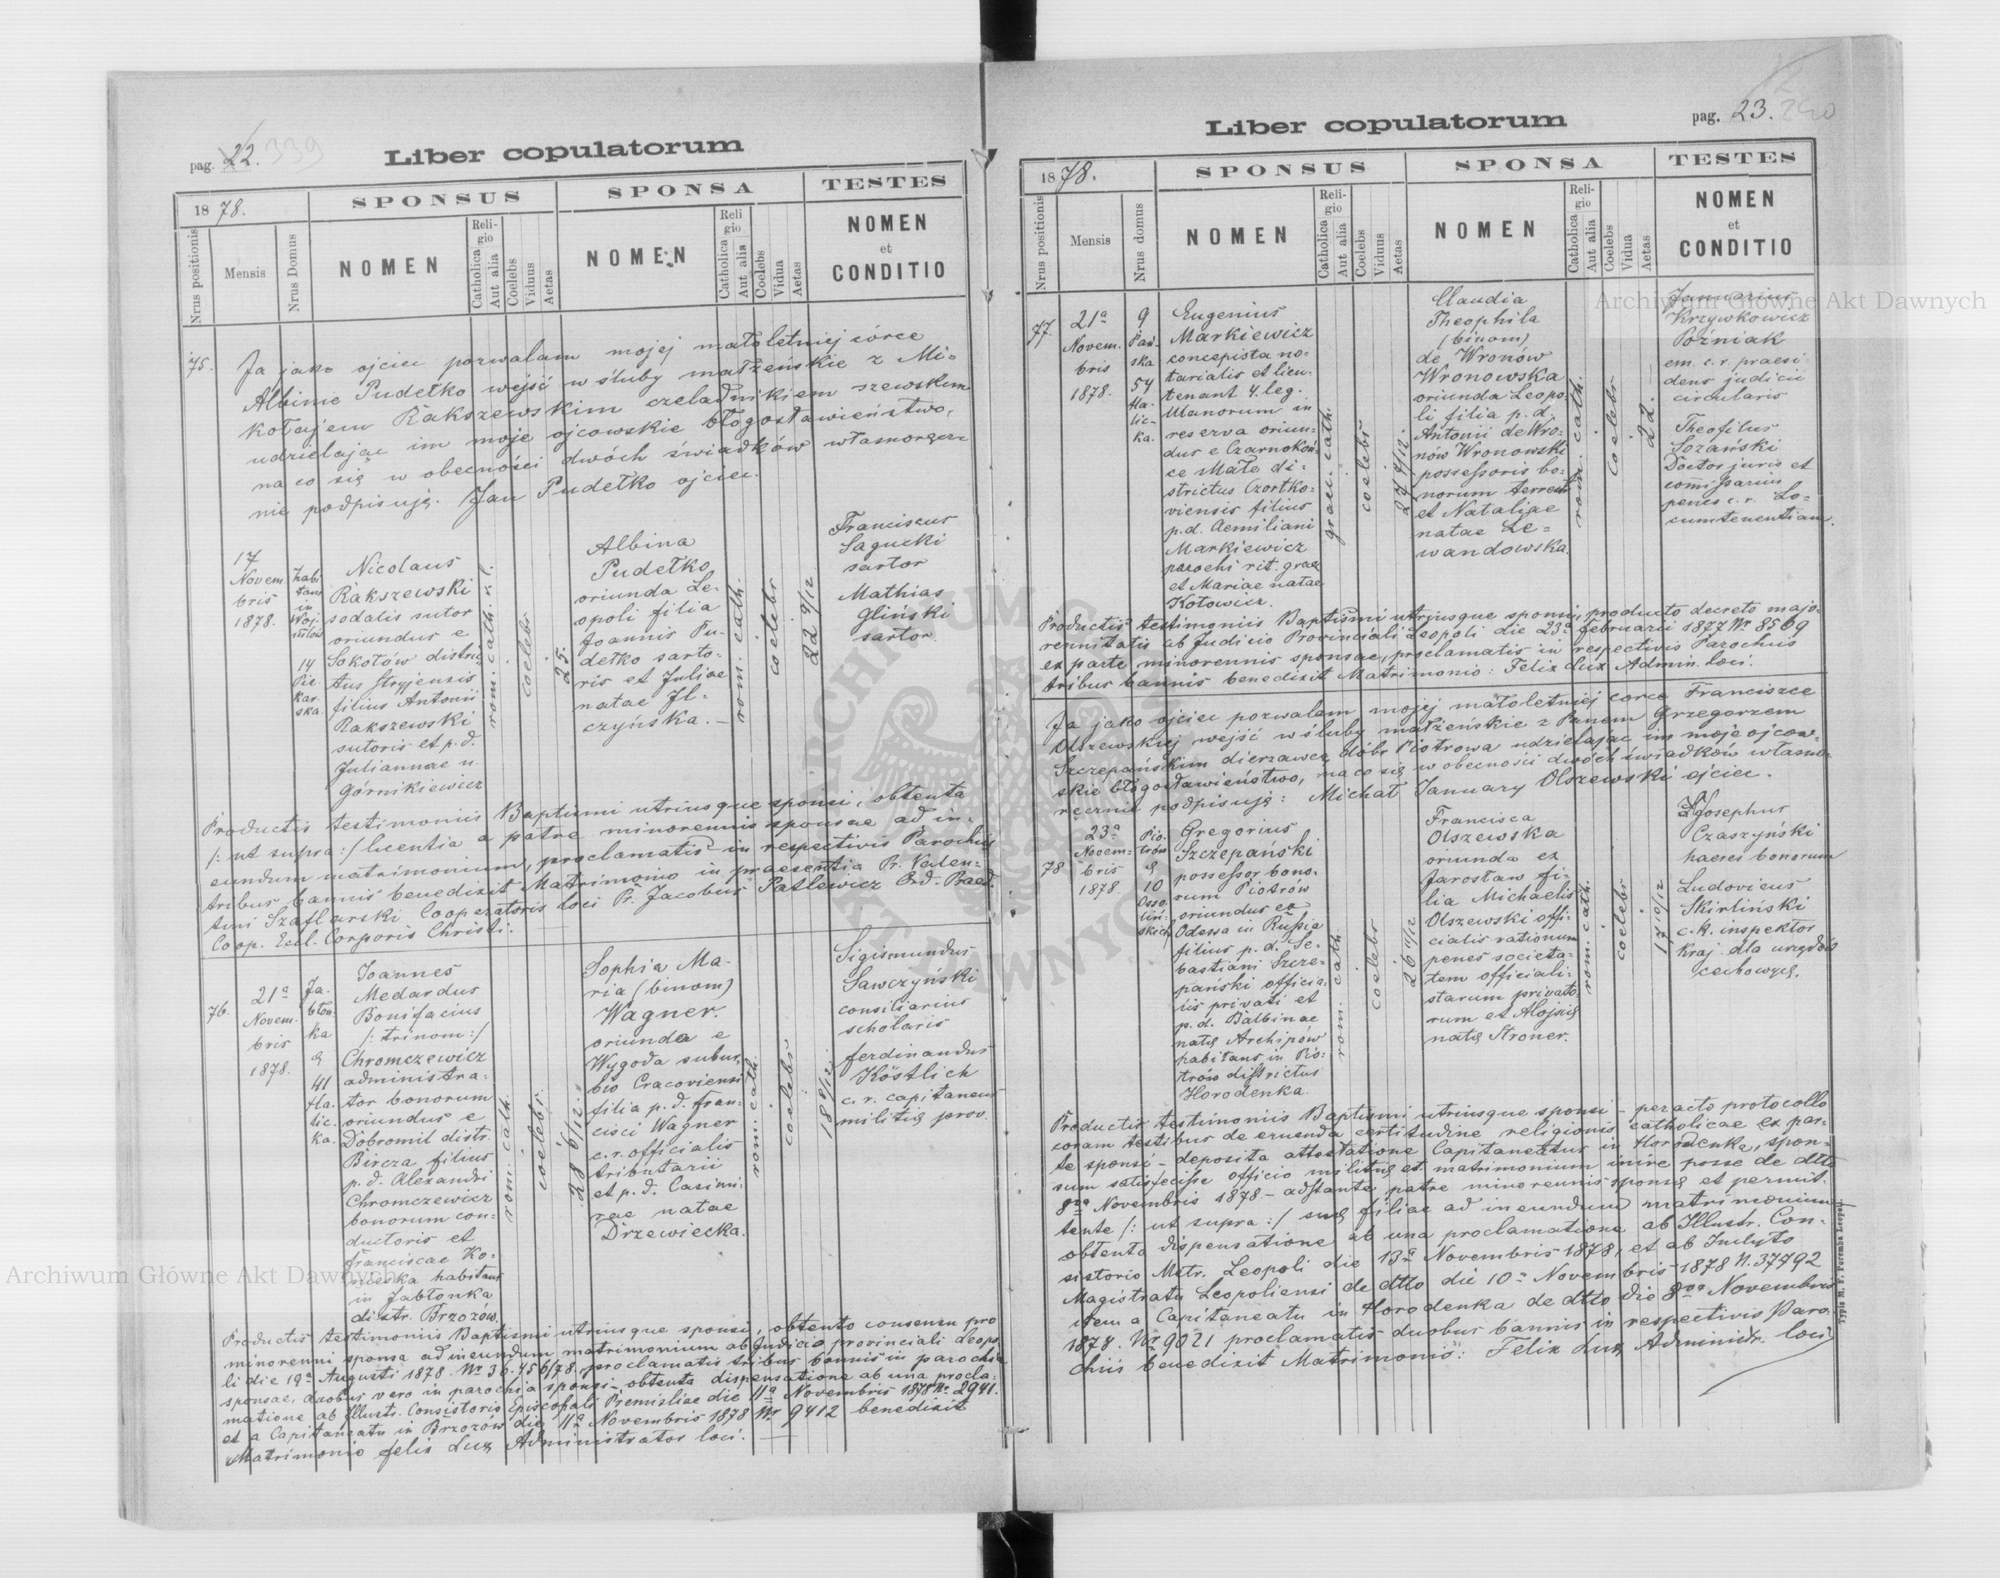 pag. 22. 339
Liber copulatorum
1878.
SPONSUS
SPONSA
TESTES
Nrus positionis
Mensis
Nrus Domus
NOMEN
Religio
Catholica
Aut alia
Coelebs
Viduus
Aetas
NOMEN
Religio
Catholica
Aut alia
Coelebs
Vidua
Aetas
NOMEN
et
CONDITIO
75.
Ja jako ojciec pozwalam mojej małoletniej córce
Albinie Pudełko wejść w śluby małżeńskie z Mi-
kołajem Rakszewskim czeladnikiem szewskim
udzielając im moje ojcowskie błogosławieństwo,
na co się w obecności dwóch świadków własnoręcz-
nie podpisuję. Jan Pudełko ojciec.
17
Novem-
bris
1878.
habi
tans
in
14
Pie
kar
ska
Nicolaus
Rakszewski
sodalis sutor
oriundus e
Sokołów distric
tus Stryjensis
filius Antonii
Rakszewski
sutoris et p.d.
Juliannae n.
Górnikiewicz
rom. cath. r. l.
coelebs
25.
Albina
Pudełko
oriunda Le-
opoli filia
Joannis Pu-
dełko sarto-
ris et Juliae
natae Il-
czyńska. —
rom. cath.
coelebs
22 9/12
Franciscus
Sagucki
sartor
Mathias
Gliński
sartor.
Productis testimoniis Baptismi utriusque sponsi, obtenta
/: ut supra :/ licentia a patre minorennis sponsae ad in-
eundum matrimonium, proclamatis in respectivis Parochiis
tribus bannis benedixit Matrimonio in praesentia Pr. Valen-
tini Szaflarski Cooperatoris loci Pr. Jacobus Patlewicz Ord. Praed.
Coop. Eccl. Corporis Christi.
76.
21a
Novem-
bris
1878.
Ja-
błon-
ka
&
41
Ha-
lic-
ka.
Joannes
Medardus
Bonifacius
/: trinom :/
Chromczewicz
administra-
tor bonorum
oriundus e
Dobromil distr.
Bircza filius
p. d. Alexandri
Chromczewicz
bonorum con-
ductoris et
Franciscae Ko-
niecka habitans
in Jabłonka
distr. Brzozów.
rom. cath.
coelebs
28 6/12.
Sophia Ma-
ria (binom)
Wagner.
oriunda e
Wygoda subur-
bio Cracoviensi
filia p. d. Fran-
cisci Wagner
c. r. officialis
tributarii
et p. d. Casimi-
rae natae
Drzewiecka.
rom. cath.
coelebs
18 9/12.
Sigismundus
Sawczyński
consiliarius
scholaris
Ferdinandus
Köstlich
c. r. capitaneus
militię prov.
Productis testimoniis Baptismi utriusque sponsi, obtento consensu pro
minorenni sponsa ad ineundum matrimonium ab Judicio provinciali Leopo
li die 19a Augusti 1878 Nr 36.456/78, proclamatis tribus bannis in parochia
sponsae, duobus vero in parochia sponsi, obtenta dispensatione ab una procla-
matione ab Illustr. Consistorio Episcopali Premisliae die 11a Novembris 1878 Nr. 2941.
et a Capitaneatu in Brzozów die 11a Novembris 1878 Nr 9412 benedixit
Matrimonio Felix Lux Administrator loci.
pag. 23. 240
Liber copulatorum
1878.
SPONSUS
SPONSA
TESTES
Nrus positionis
Mensis
Nrus domus
NOMEN
Religio
Catholica
Aut alia
Coelebs
Viduus
Aetas
NOMEN
Religio
Catholica
Aut alia
Coelebs
Vidua
Aetas
NOMEN
et
CONDITIO
77.
21a
Novem-
bris
1878.
9
Pań-
ska
54
Ha-
lic-
ka.
Eugenius
Markiewicz
concepista no-
tarialis et lieu-
tenant 4. leg.
Ulanorum in
reserva oriun-
dus e Czarnokoń-
ce Małe di-
strictus Czortko-
viensis filius
p.d. Aemiliani
Markiewicz
parochi rit. graec
et Mariae natae
Kotowicz.
graec. cath.
coelebs
27 4/12.
Claudia
Theophila
(binom)
de Wronów
Wronowska
oriunda Leopo-
li filia p. d.
Antonii de Wro-
nów Wronowski
possessoris bo-
norum terrest
et Nataliae
natae Le-
wandowska.
rom. cath.
coelebs
22.
Januarius
Krzywkowicz
Poźniak
em. c. r. praesi-
dens judicii
circularis
Theofilus
Sozański
Doctor juris et
commissarius
penes c. r. Lo-
cumtenentiam.
Productis testimoniis Baptismi utriusque sponsi, producto decreto majo-
rennitatis ab Judicio Provinciali Leopoli die 23a Februarii 1877 Nr 8569
ex parte minorennis sponsae, proclamatis in respectivis Parochiis
tribus bannis benedixit Matrimonio: Felix Lux Admin. loci.
Ja jako ojciec pozwalam mojej małoletniej córce Franciszce
Olszewskiej wejść w śluby małżeńskie z Panem Grzegorzem
Szczepańskim dzierżawcą dóbr Piotrowa udzielając im moje ojcow-
skie błogosławieństwo, na co się w obecności dwóch świadków własno-
ręcznie podpisuję: Michał January Olszewski ojciec.
78.
23a
Novem-
bris
1878.
Pio-
trów
&
10
Osso-
liń-
skich
Gregorius
Szczepański
possessor bono-
rum Piotrów
oriundus ex
Odessa in Russia
filius p. d. Se-
bastiani Szcze-
pański officia-
lis privati et
p. d. Balbinae
natę Archipów
habitans in Pio-
trów districtus
Horodenka.
rom. cath
coelebs
26 11/12
Francisca
Olszewska
oriunda ex
Jarosław fi-
lia Michaelis
Olszewski offi-
cialis rationum
penes societa-
tem officiali-
starum privato-
rum et Alojsię
natę Stroner.
rom. cath.
coelebs
17 10/12
Josephus
Czaszyński
haeres bonorum
Ludovicus
Skirliński
c. k. inspektor
kraj. dla urzędów
cechowych.
Productis testimoniis Baptismi utriusque sponsi - peracto protocollo
coram testibus de eruenda certitudine religionis catholicae ex par-
te sponsi - deposita attestatione Capitaneatus in Horodenka, spon-
sum satisfecisse officio militię et matrimonium inire posse de dtto
8va Novembris 1878 - adstante patre minorennis sponsę et permit-
tente /: ut supra :/ suę filiae ad ineundum matrimonium
obtenta dispensatione ab una proclamatione ab Illustr. Con-
sistorio Metr. Leopoli die 13a Novembris 1878, et ab Inclyto
Magistratu Leopoliensi de dtto die 10a Novembris 1878 N. 37792
item a Capitaneatu in Horodenka de dtto die 8va Novembris
1878. Nr 9021 proclamatis duobus bannis in respectivis Paro-
chiis benedixit Matrimonio: Felix Lux Administr. loci
Typis M. F. Poremba Leopol.
Archiwum Główne Akt Dawnych
Archiwum Główne Akt Dawnych